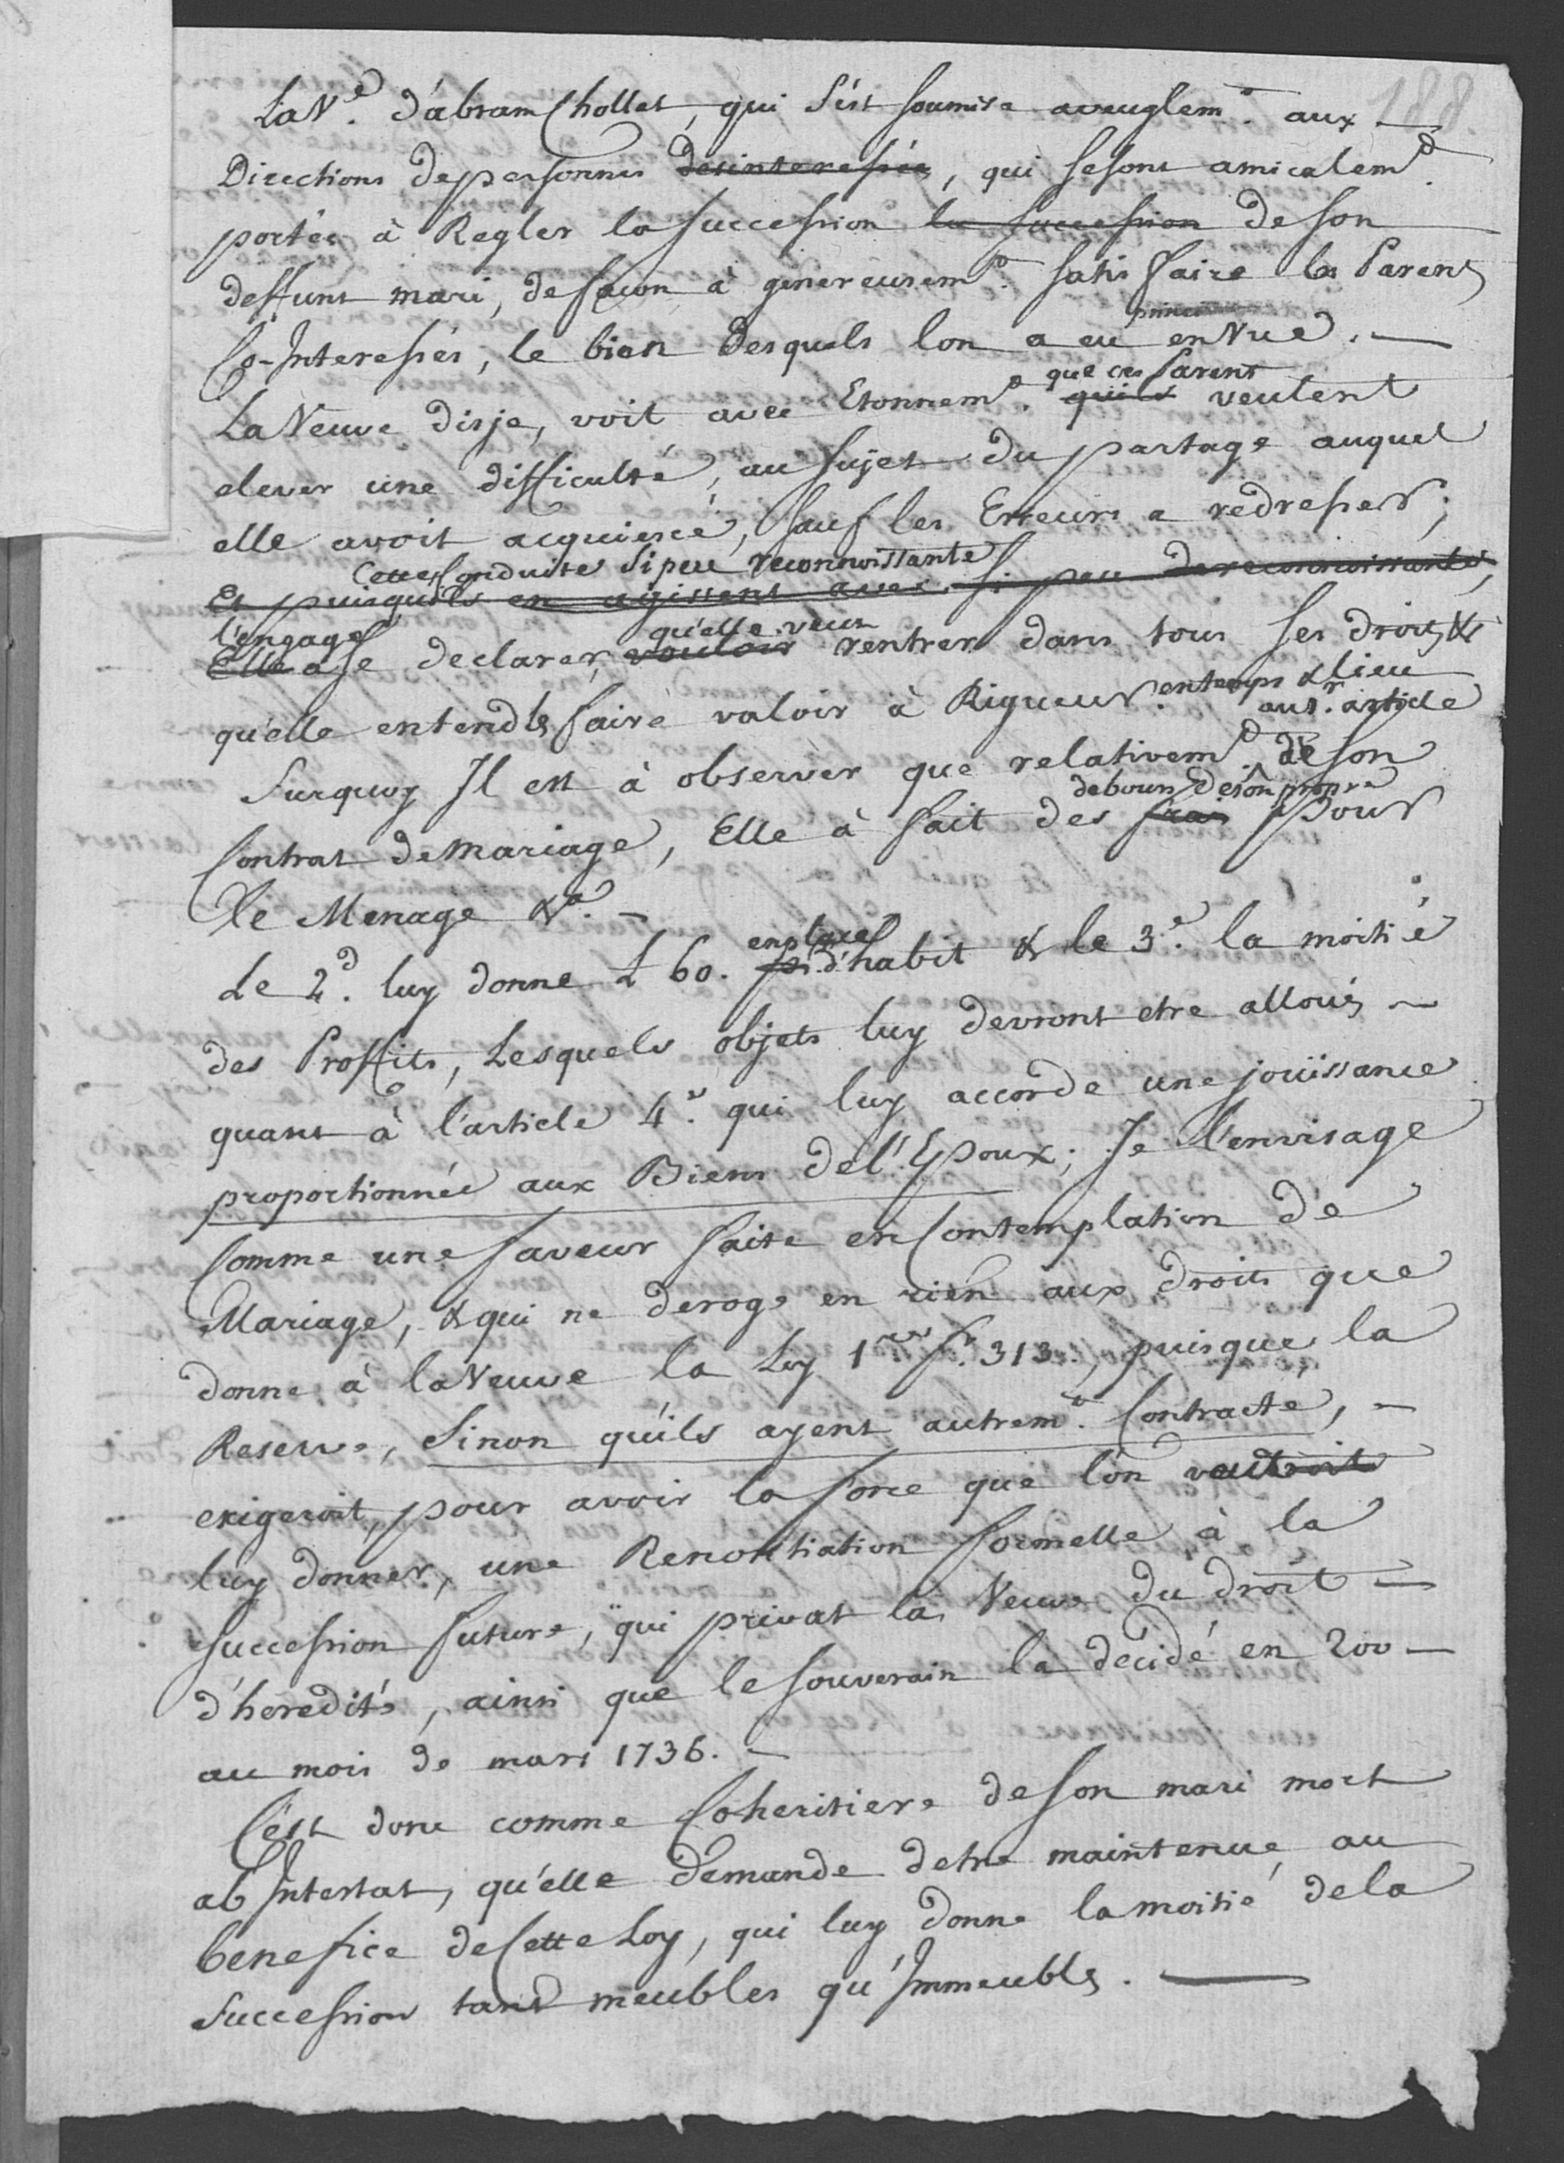 188.
La V.e d'abram Chollet, qui s'ést soumise aveuglem.t aux
Directions de personnes desinteressées, qui se sont amicalem.t
portées à Regler la succession la succession de son
deffunt mari, de façon à genereusem.t satisfaire les Parens
Co-Interessés, le bien desquels lon a eu en Vue. —
que ces Parens
La Veuve disje, voit avec Etonnem.t qu'ils veulent
elever une difficulté, au sujet du partage auquel
elle avoit acquiescé, sauf les Erreurs a redresser;
Cette Conduite si peu reconnoissante
Et puisqu'ils en agissent avec si peu de reconnoissante,
l'engage qu'elle veut
Elle a se declarer, vouloir rentrer dans tous ses droits &
qu'elle entend les faire valoir à Rigueur. en temps & lieu
au 1.r article
Surquoy Il est à observer que relativem.t de son
debours de son propre
Contrat de mariage, Elle à fait des frais pour
Le Menage &.a —
en place
Le 2.d luy donne L 60. pr. d'habit & le 3.e la moitié
des Proffits, Lesquels objets luy devront etre alloués —
quant à l'article 4.e qui luy accorde une joüissance
proportionnée aux Biens de l'Epoux; Je l'envisage
Comme une faveur faite en Contemplation de
Mariage, & qui ne deroge en rien aux droits que
donne à la Veuve la Loy 1.ere f.o 313., puisque la
Reserve, Sinon qu'ils ayent autrem.t Contracté, —
exigeroit, pour avoir la force que l'on voudroit
luy donner, une Renontiation formelle à la
succession future, qui privat la Veuve du droit —
d'heredité, ainsi que le souverain la décidé en 200 —
au mois de mars 1736. —
C'ést donc comme Coheritiere de son mari mort
ab Intestat, qu'elle demande detre maintenue au
benefice de Cette Loy, qui luy donne la moitié de la
Succession tant meubles qu'Immeubles. —